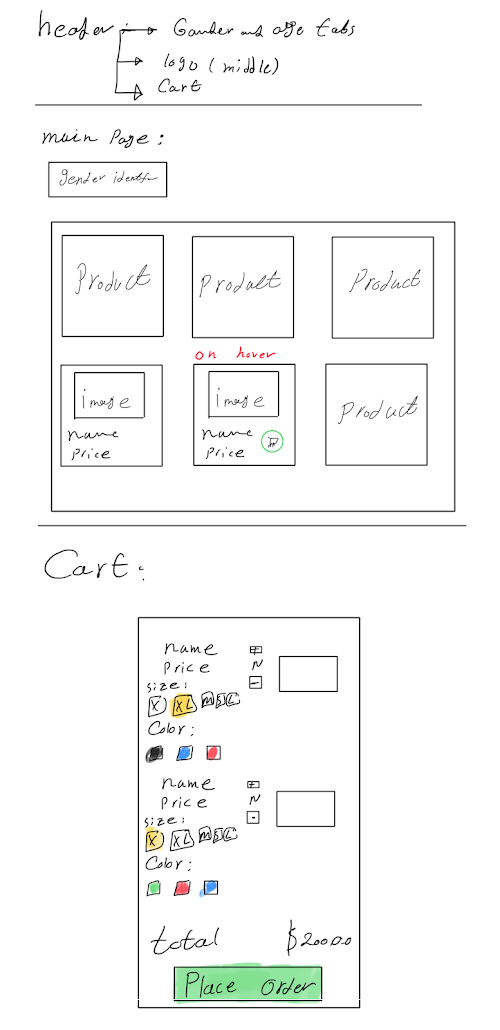 header :
Gander and age tabs
logo (middle)
Cart
main Page :
gender identifr
Product
Product
Product
on hover
image
name
price
image
name
price
Product
Cart :
name
Price
size :
N
X XL M S L
Color :
name
Price
size :
N
X XL M S L
Color :
total $200.0
Place Order